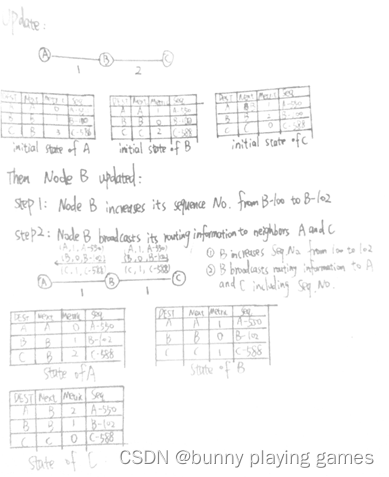 Update:
A B C
1 2
DEST Next Metric Seq
A A 0
B B 1 B-100
C B
DEST Next Metric Seq
A A
B B 0 B-100
C C 2 C-588
DEST Next Metric Seq
A B
B B 2 B-100
C C 0 C-588
initial state of A
initial state of B
initial state of C
Then Node B updated:
Step 1: Node B increases its sequence No. from B-100 to B-102
Step 2: Node B broadcasts its routing information to neighbors A and C
(A, 1, A-550)
(B, 0, B-102)
(C, 1, C-588)
(A, 1, A-550)
(B, 0, B-102)
(C, 1, C-588)
A B C
1 1
① B increases Seq.No from 100 to 102
② B broadcasts routing information to A
and C including Seq.No.
DEST Next Metric Seq
A A 0 A-550
B B 1 B-102
C B 2 C-588
state of A
DEST Next Metric Seq
A A 1 A-550
B B 0 B-102
C C 1 C-588
state of B
DEST Next Metric Seq
A B 2 A-550
B B 1 B-102
C C 0 C-588
state of C
CSDN @bunny playing games